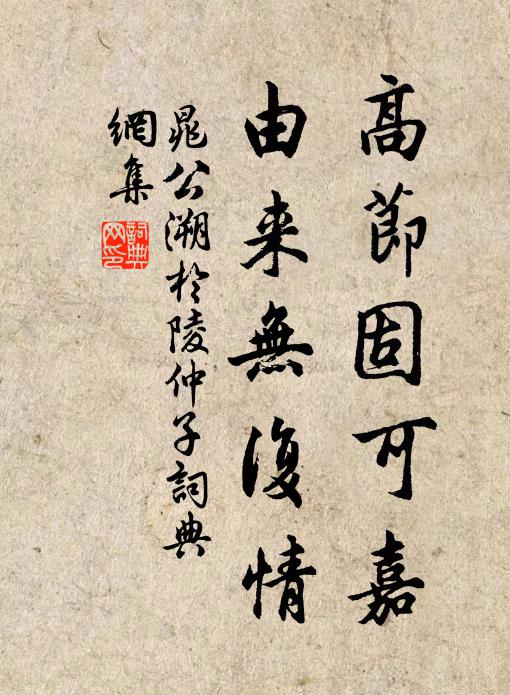 高節固可嘉
由来無復情
晁公溯於陵仲子詞典
網集
詞典
网印